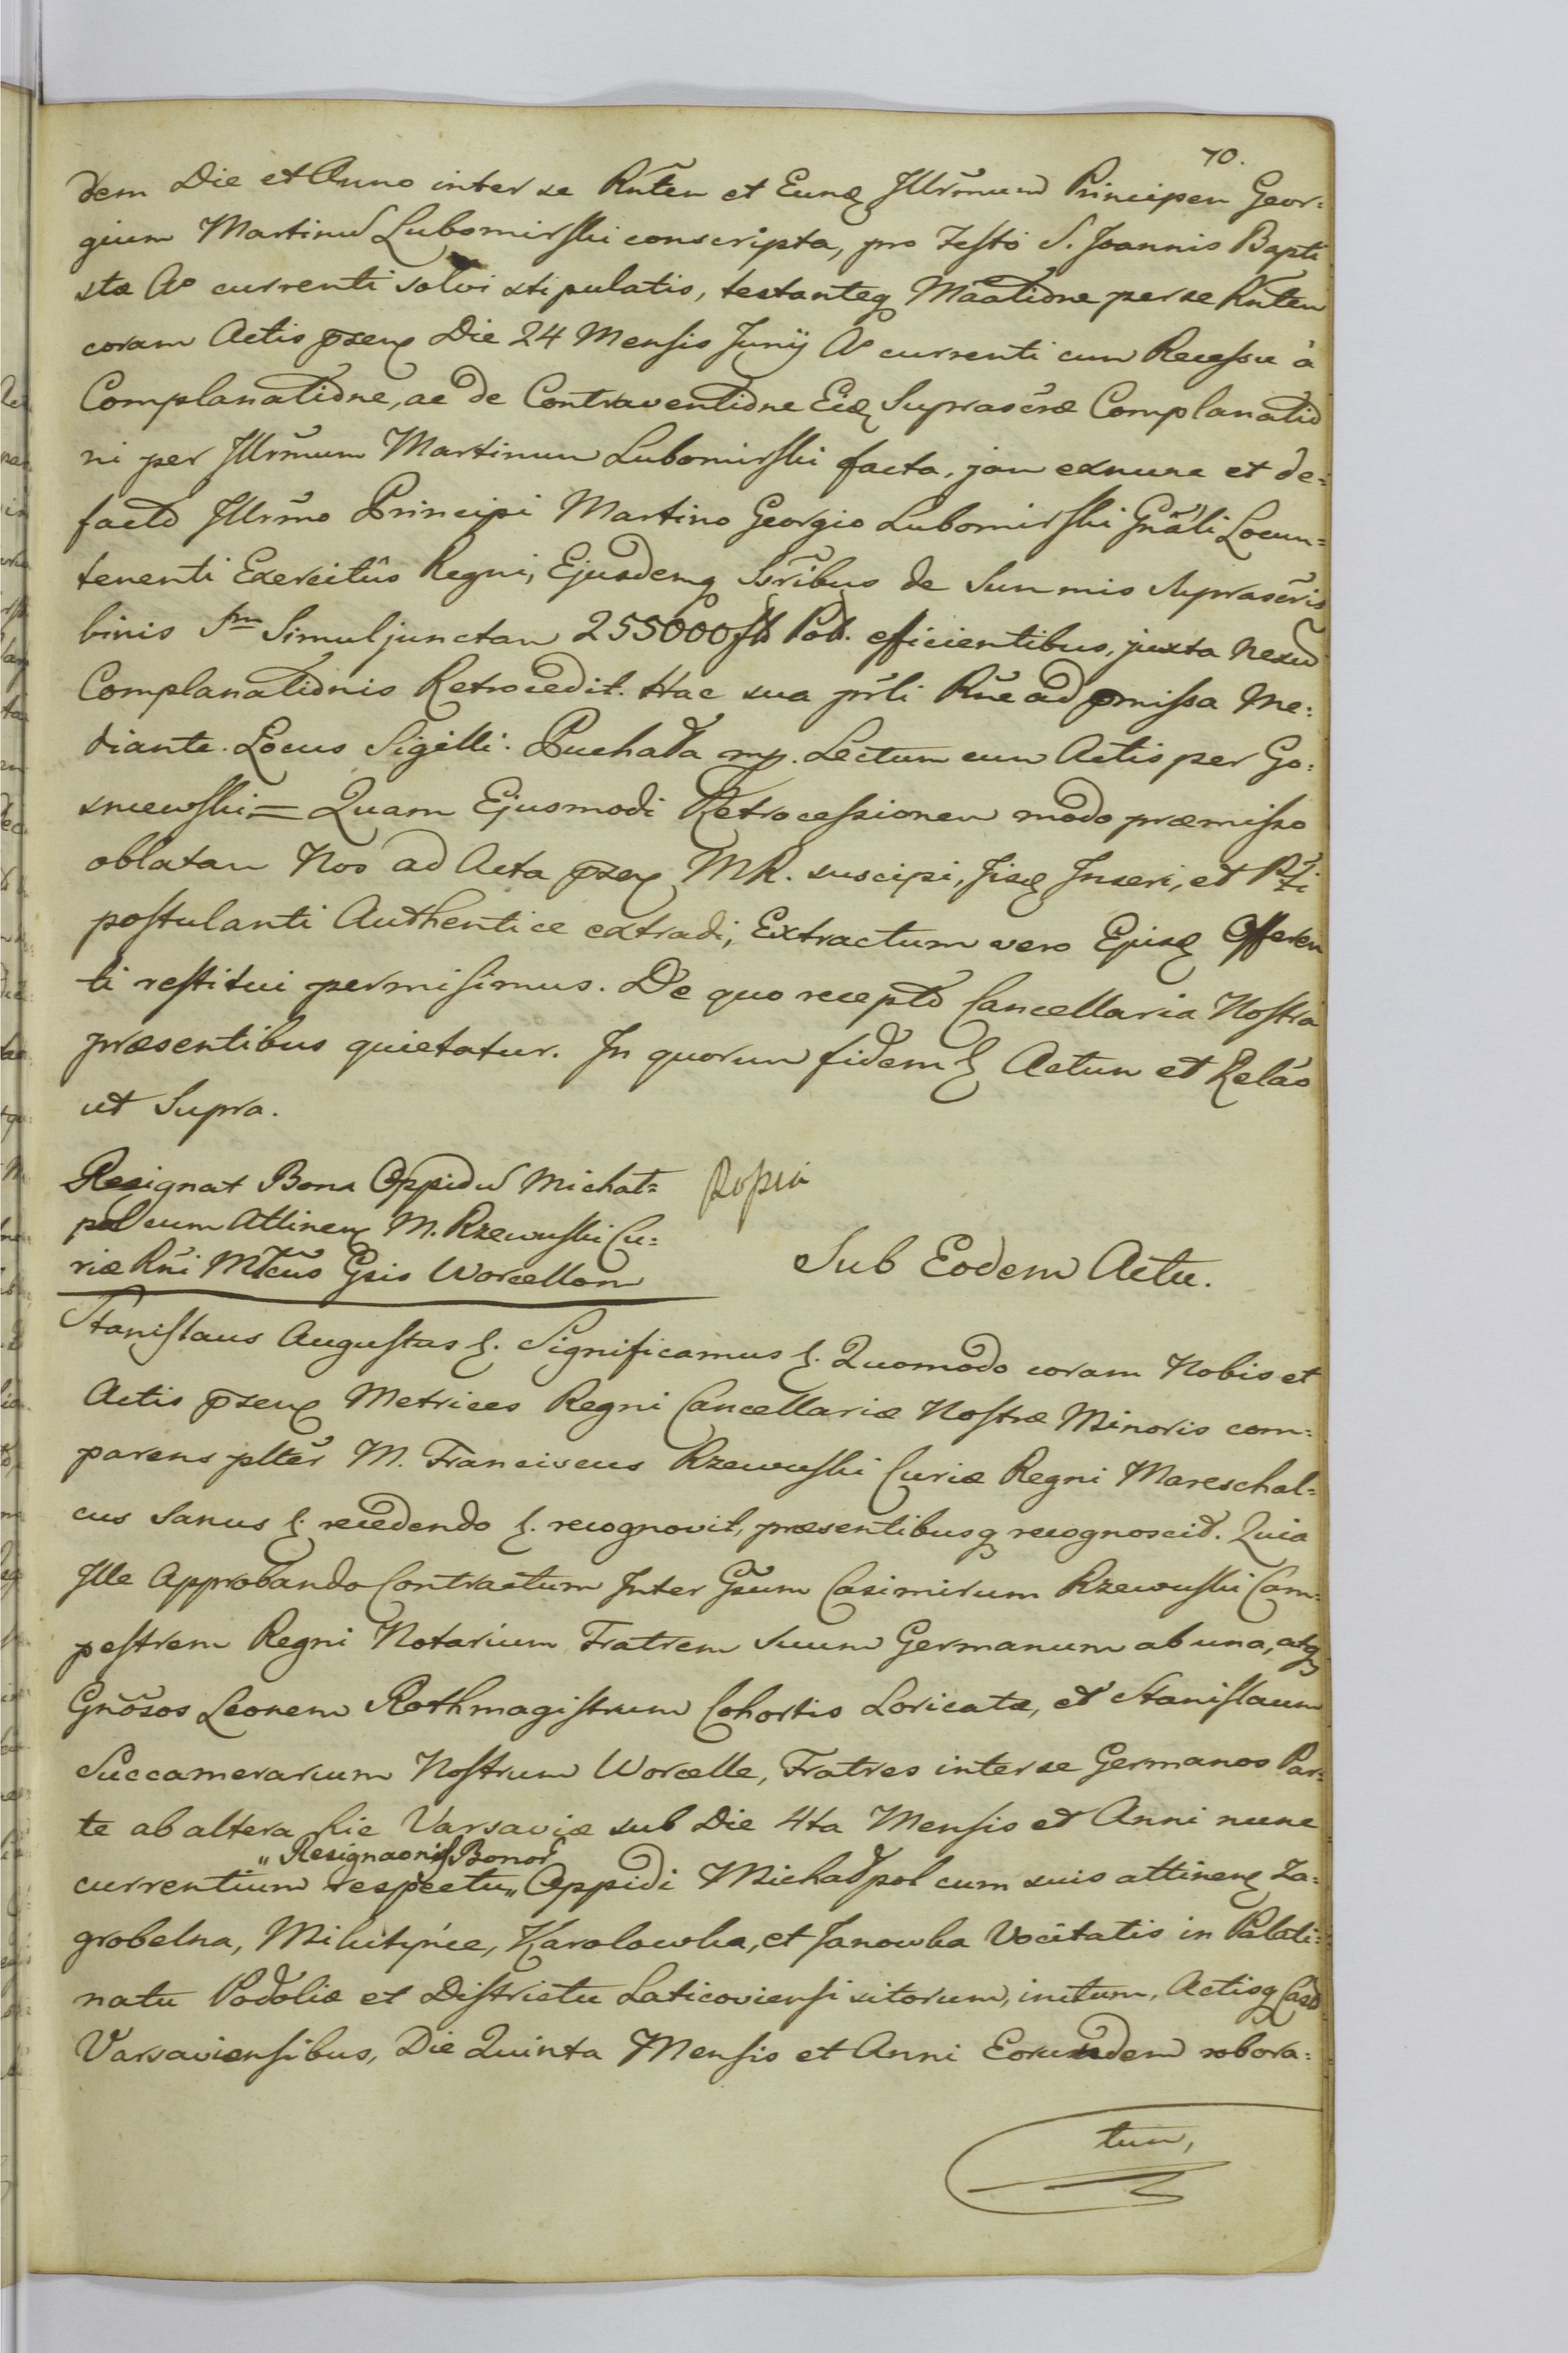 70.
dem Die et Anno inter se Rñtem et Eunđ Jllrm̃um Principem Geor=
gium Martinū Lubomirski conscripta, pro Festo S. Joannis Bapti
stæ A° currenti solvi stipulatis, testanteq Mãatione per se Rñtem
coram Actis p̃zeng Die 24 Mensis Junij A° currenti cum Recessu à
Complanatione, ac de Contraventione Eid Suprascr̃æ Complanatio
ni per Jllrm̃um Martinum Lubomirski facta, jam exnunc et de=
facto Jllrm̃o Principi Martino Georgio Lubomirski Gñali Locum=
tenenti Exercitûs Regni, Ejusdemq Ssr̃ibus de Summis suprascr̃is
binis Sm̃ Simul junctam 255000 fl Pol. efficientibus, juxta Nexū
Complanationis Retrocedit. Hac sua pr̃li Rñe ad p̃missa Me=
diante. Locus Sigilli. Puchała mp. Lectum cum Actis per Go=
sniewski = Quam Ejusmodi Retrocessionem modo præmisso
oblatam Nos ad Acta p̃zeng MR. suscipi, Jisđ Jnseri, et Pti
postulanti Authentice extradi, Extractum vero Ejusđ Offeren
ti restitui permisimus. De quo recepto Cancellaria Nostra
præsentibus quietatur. Jn quorum fidem &. Actum et Relão
ut Supra.
Resignat Bona Oppidū Michał=
pol cum Attineng M. Rzewuski Cu=
riæ Rñi Młcus Gsis Worcellom
Ropia
Sub Eodem Actu.
Stanislaus Augustus &. Significamus &. Quomodo coram Nobis et
Actis p̃zeng Metrices Regni Cancellariæ Nostræ Minoris com=
parens plter̃ M. Franciscus Rzewuski Curiæ Regni Mareschal=
cus Sanus &. recedendo &. recognovit, præsentibusq recognoscit. Quia
Jlle Approbando Contractum Jnter Gsũm Casimirum Rzewuski Cam=
pestrem Regni Notarium Fratrem Suum Germanum ab una, atq
Gñosos Leonem Rothmagistrum Cohortis Loricatæ, et Stanislaum
Succamerarium Nostrum Worcelle, Fratres inter se Germanos Par=
te ab altera hic Varsaviæ sub Die 4ta Mensis et Anni nunc
„Resignaonis Bonor
currentium respectu„ Oppidi Michałpol cum suis attineng Za=
grobelna, Mikitynce, Karolowka, et Janowka Vocitatis in Palati=
natu Podoliæ et Districtu Laticoviensi sitorum, initum, Actisq Cast
Varsaviensibus, Die Quinta Mensis et Anni Eorundem robora=
tum,